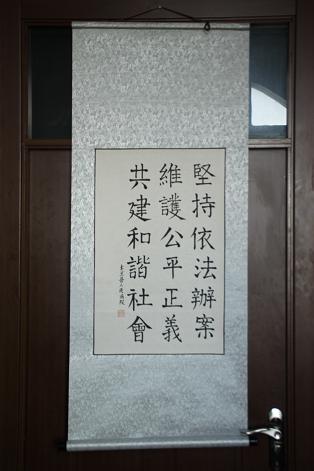 堅持依法辦案
維護公平正義
共建和諧社會